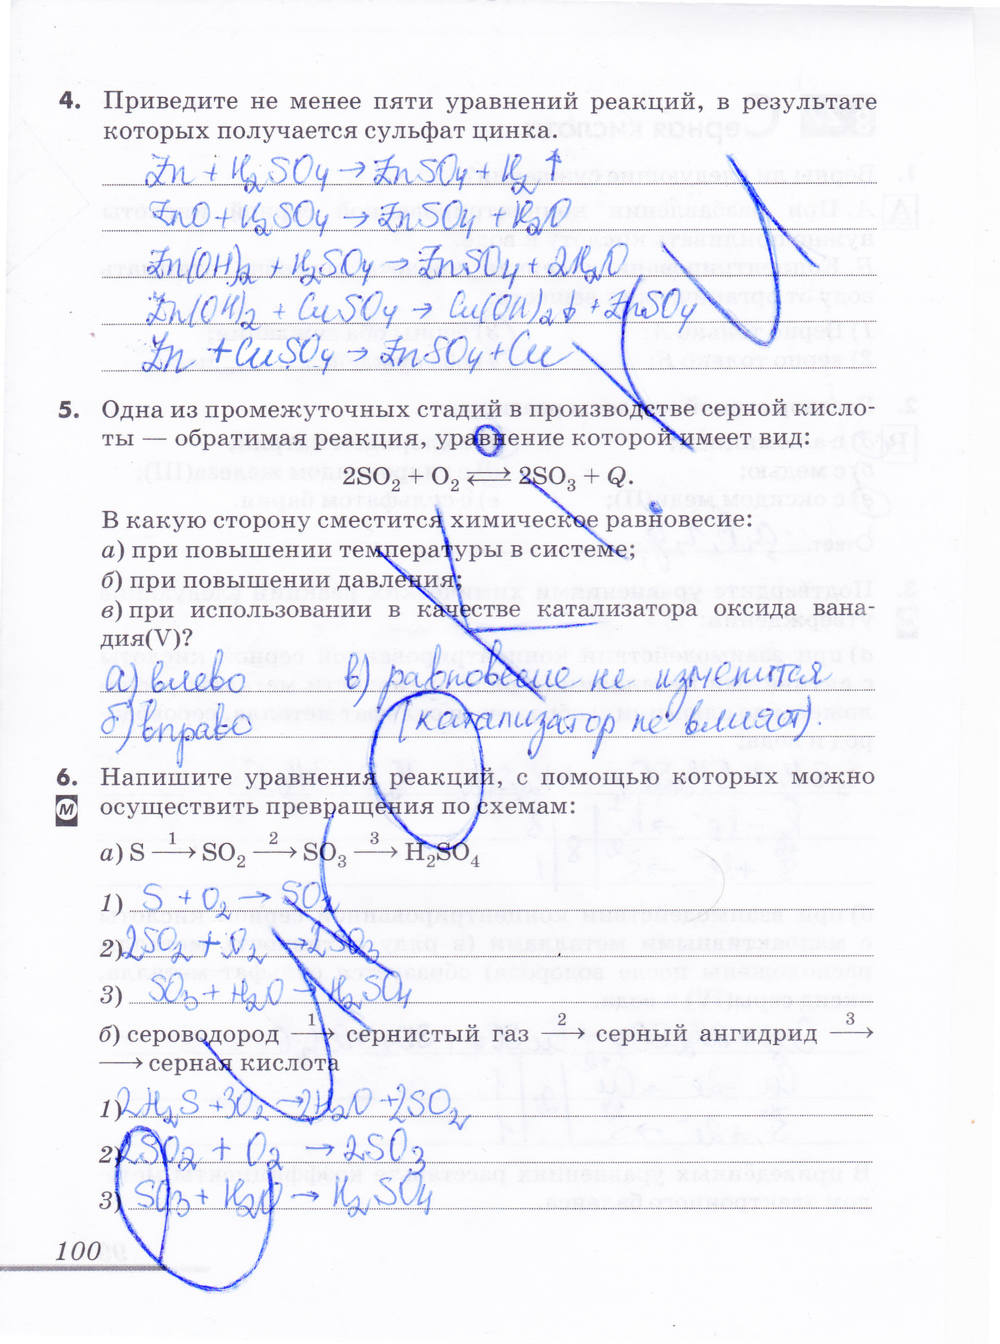 4. Приведите не менее пяти уравнений реакций, в результате
которых получается сульфат цинка.
Zn + H₂SO₄ → ZnSO₄ + H₂↑
ZnO + H₂SO₄ → ZnSO₄ + H₂O
Zn(OH)₂ + H₂SO₄ → ZnSO₄ + 2H₂O
Zn(OH)₂ + CuSO₄ → Cu(OH)₂↓ + ZnSO₄
Zn + CuSO₄ → ZnSO₄ + Cu
5. Одна из промежуточных стадий в производстве серной кисло-
ты — обратимая реакция, уравнение которой имеет вид:
2SO₂ + O₂ ⟷ 2SO₃ + Q.
В какую сторону сместится химическое равновесие:
а) при повышении температуры в системе;
б) при повышении давления;
в) при использовании в качестве катализатора оксида вана-
дия(V)?
а) влево в) равновесие не изменится
б) вправо (катализатор не влияет).
6. Напишите уравнения реакций, с помощью которых можно
М осуществить превращения по схемам:
а) S —1→ SO₂ —2→ SO₃ —3→ H₂SO₄
1) S + O₂ → SO₂
2) 2SO₂ + O₂ → 2SO₃
3) SO₃ + H₂O → H₂SO₄
б) сероводород —1→ сернистый газ —2→ серный ангидрид —3→
→ серная кислота
1) 2H₂S + 3O₂ → 2H₂O + 2SO₂
2) 2SO₂ + O₂ → 2SO₃
3) SO₃ + H₂O → H₂SO₄
100